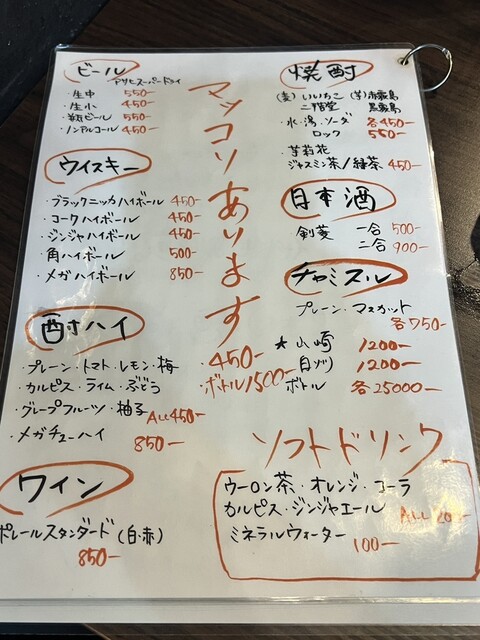 ビール
アサヒスーパードライ
・生中 550-
・生小 450-
・瓶ビール 550-
・ノンアルコール 450-
ウイスキー
・ブラックニッカハイボール 450-
・コークハイボール 450-
・ジンジャハイボール 450-
・角ハイボール 500-
・メガハイボール 850-
酎ハイ
・プレーン・トマト・レモン・梅
・カルピス・ライム・ぶどう
・グレープフルーツ・柚子 ALL450-
・メガチューハイ 850-
ワイン
ポレールスタンダード(白・赤)
850-
マッコリあります
450-
・ボトル1500-
焼酎
(麦)いいちこ (芋)赤霧島
二階堂 黒霧島
・水・湯・ソーダ 各450-
ロック 550-
・茉莉花
ジャスミン茶/緑茶 450-
日本酒
剣菱 一合 500-
二合 900-
チャミスル
プレーン・マスカット
各750-
★山崎 1200-
白州 1200-
ボトル 各25000-
ソフトドリンク
ウーロン茶・オレンジ・コーラ
カルピス・ジンジャエール ALL
ミネラルウォーター 100-